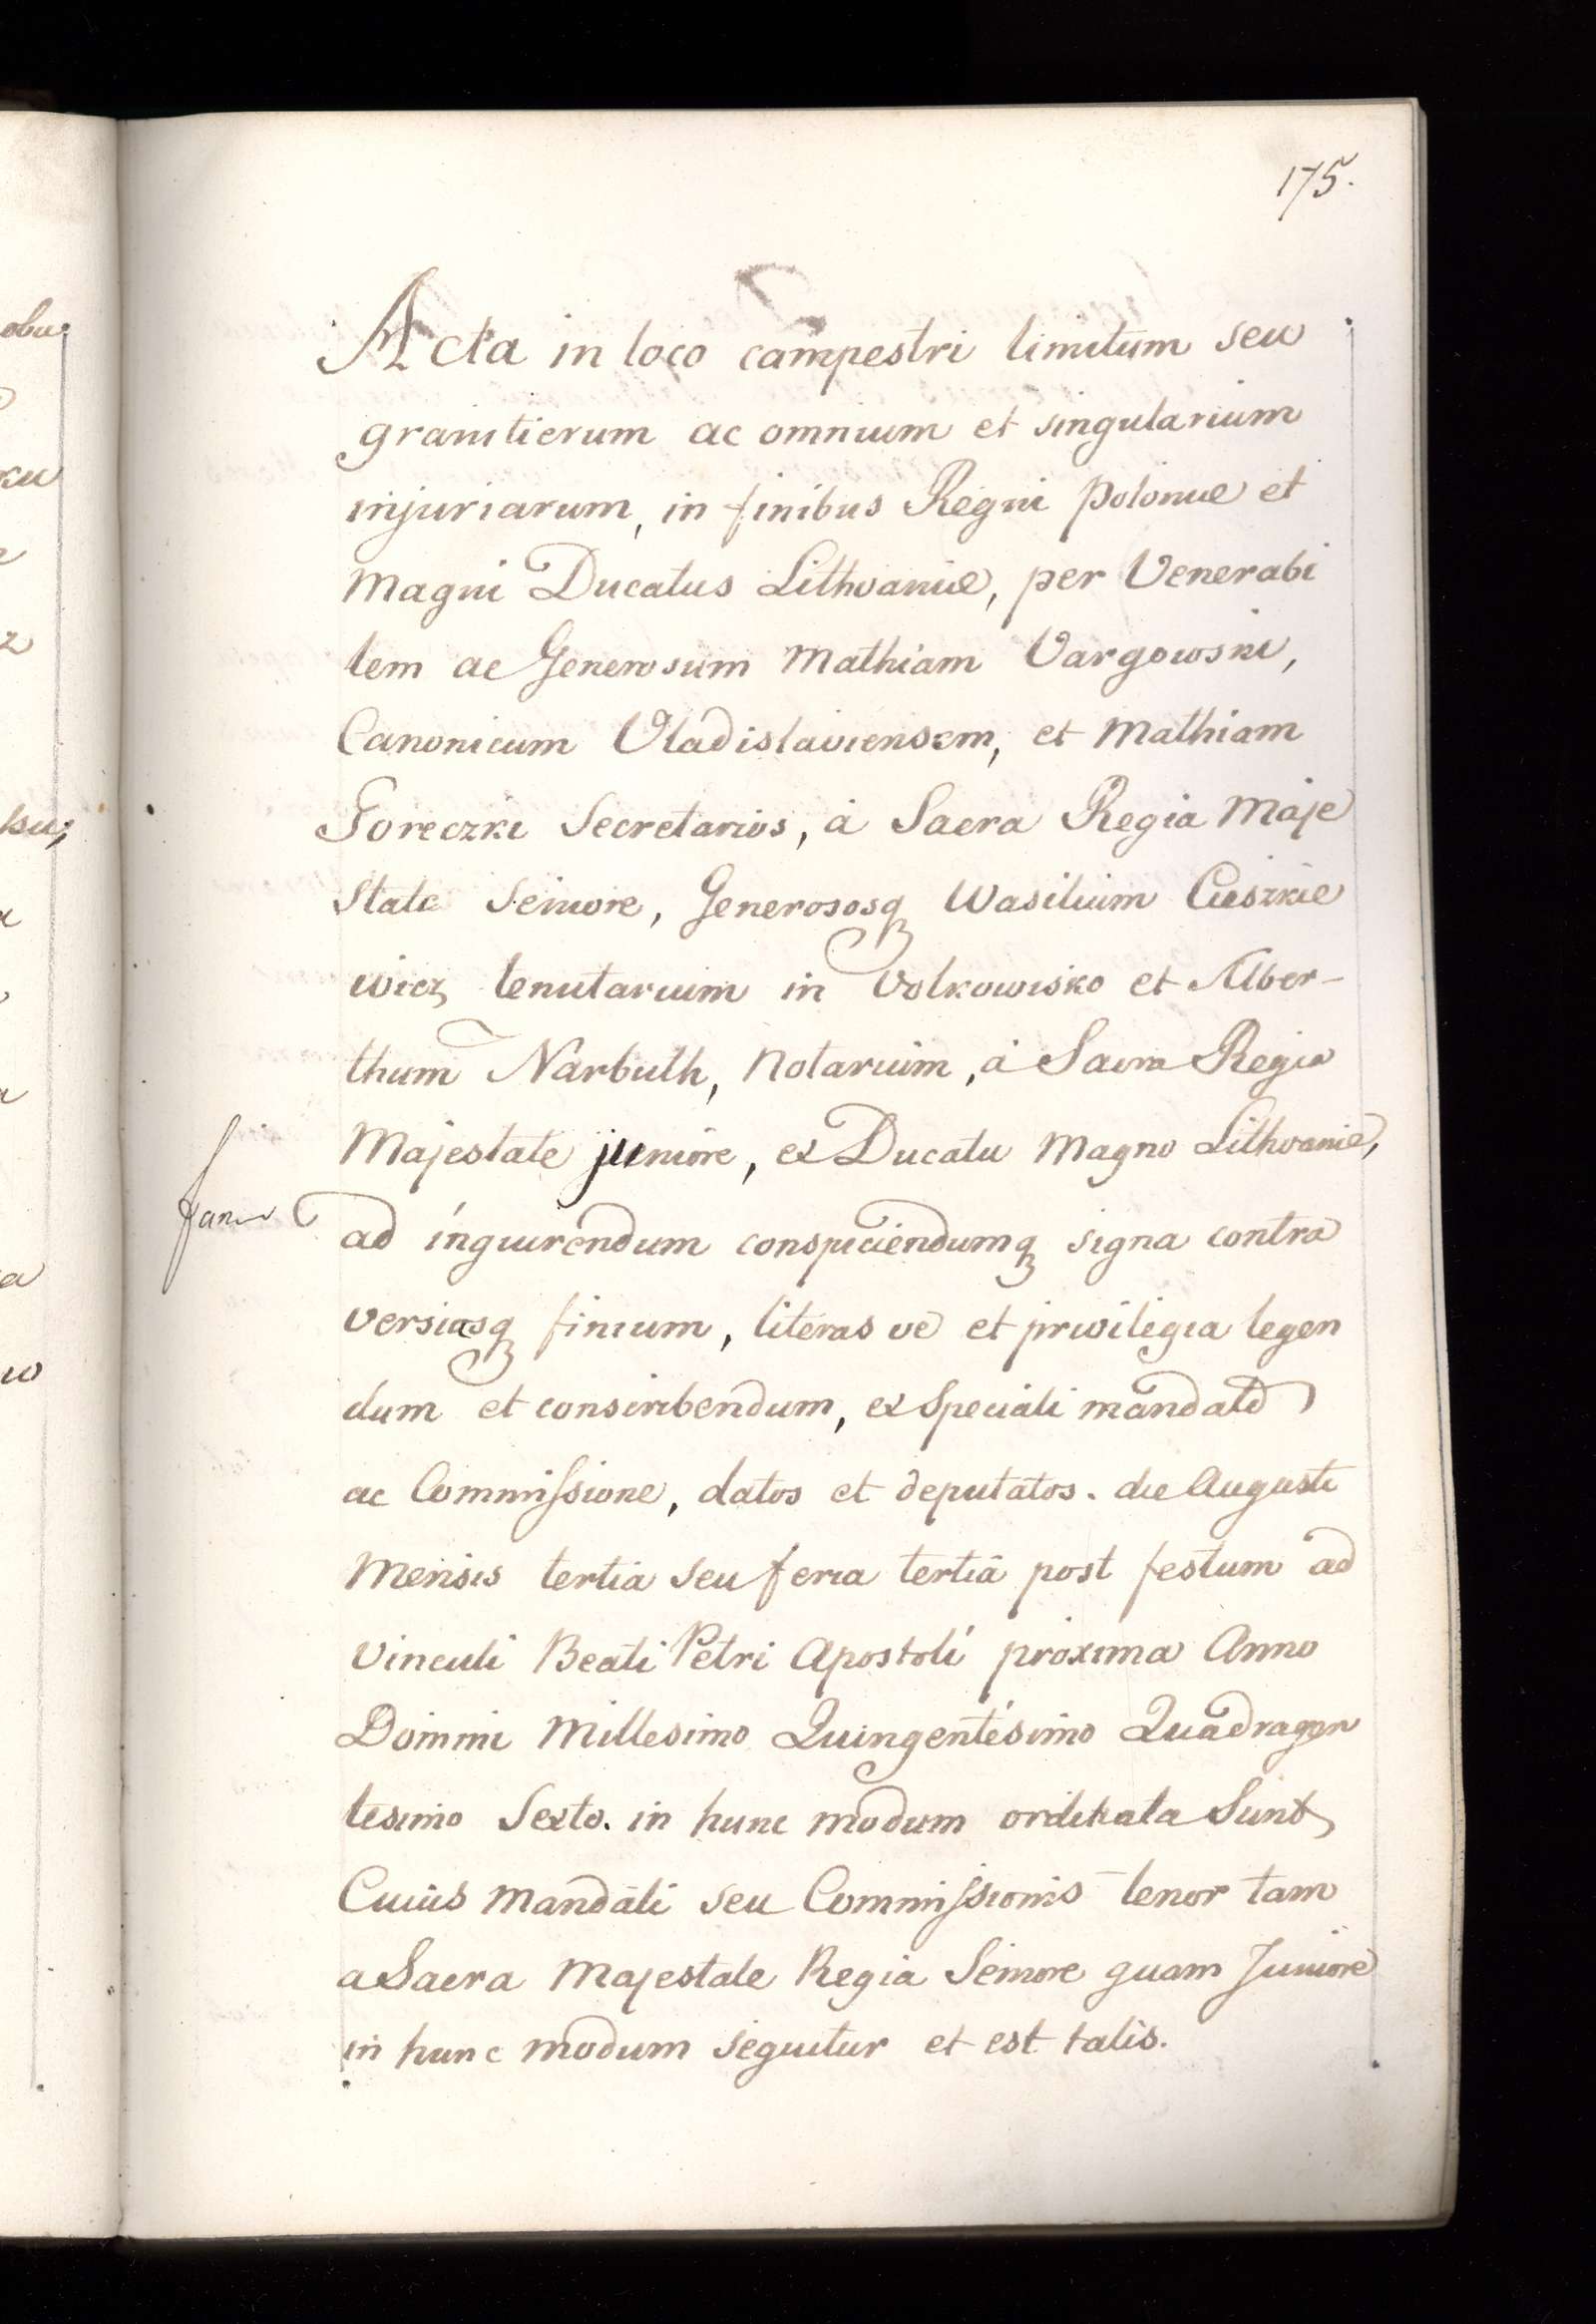 175.
Acta in loco campestri limitum seu
granitierum ac omnium et singularium
injuriarum, in finibus Regni Poloniæ et
Magni Ducatus Lithvaniæ, per Venerabi
lem ac Generosum Mathiam Vargowski,
Canonicum Vladislaviensem, et Mathiam
Goreczki Secretarios, á Sacra Regia Maje
state Seniore, Generososq Wasilium Cieszkie
wicz tenutarium in Volkowisko et Alber-
thum Narbuth, Notarium, á Sacra Regia
Majestate juniore, ex Ducatu Magno Lithvaniæ,
ad inquirendum conspiciendumq signa contra
versiasq finium, literas ve et privilegia legen
dum et conscribendum, ex Speciali mandato
ac Commissione, datos et deputatos. die Augusti
Mensis tertia seu feria tertiâ post festum ad
Vinculi Beati Petri Apostoli proxima Anno
Domini Millesimo Quingentésimo Quadragen
tesimo Sexto. in hunc modum ordinata Sunt
Cuius Mandati seu Commissionis tenor tam
a Sacra Majestate Regia Seniore quam Juniore
in hunc modum sequitur et est talis.